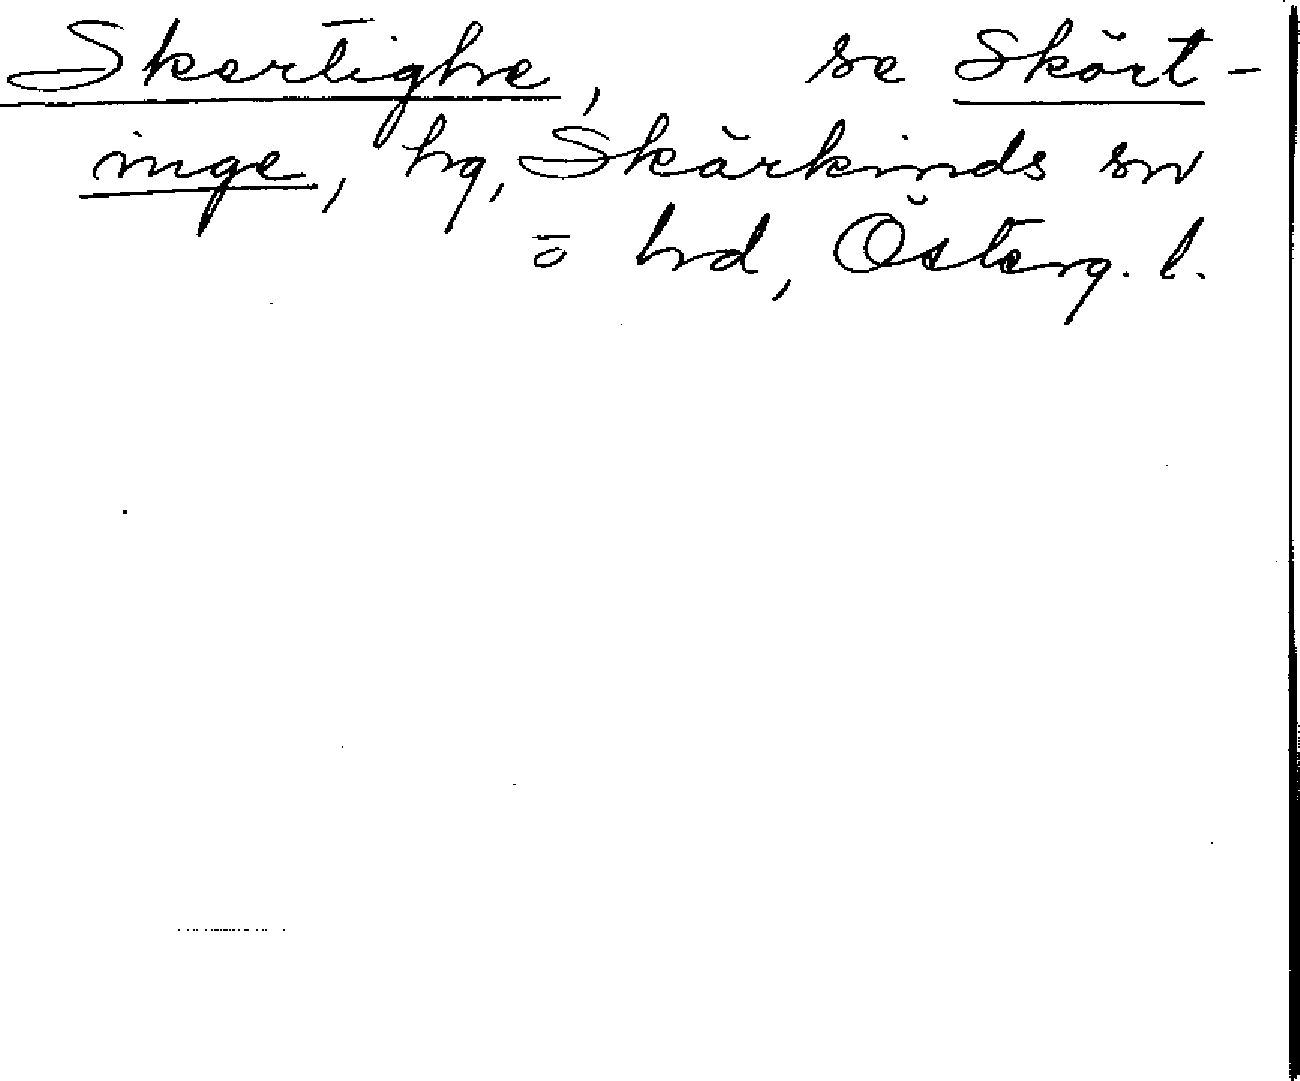 Skertighe, se Skört-
inge, hg, Skärkinds sn
ō hd, Österg. l.